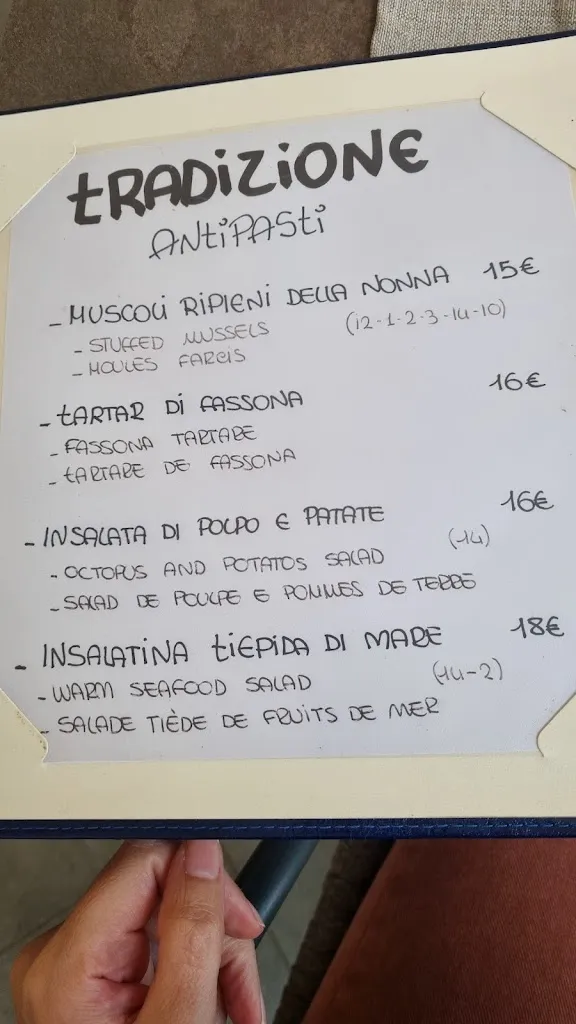 tRADiZiONE
ANtiPASti
- MUSCOLI RIPIENI DELLA NONNA 15€
- STUFFED MUSSELS (12-1-2-3-14-10)
- MOULES FARCIS
- tARTAR Di FASSONA 16€
- FASSONA TARTARE
- tARTARE DE FASSONA
- INSALATA DI POLPO E PATATE 16€
- OCTOPUS AND POTATOS SALAD (14)
- SALAD DE POULPE E POMMES DE TERRE
- INSALATINA tiEPIDA DI MARE 18€
- WARM SEAFOOD SALAD (14-2)
- SALADE TIÈDE DE FRUITS DE MER